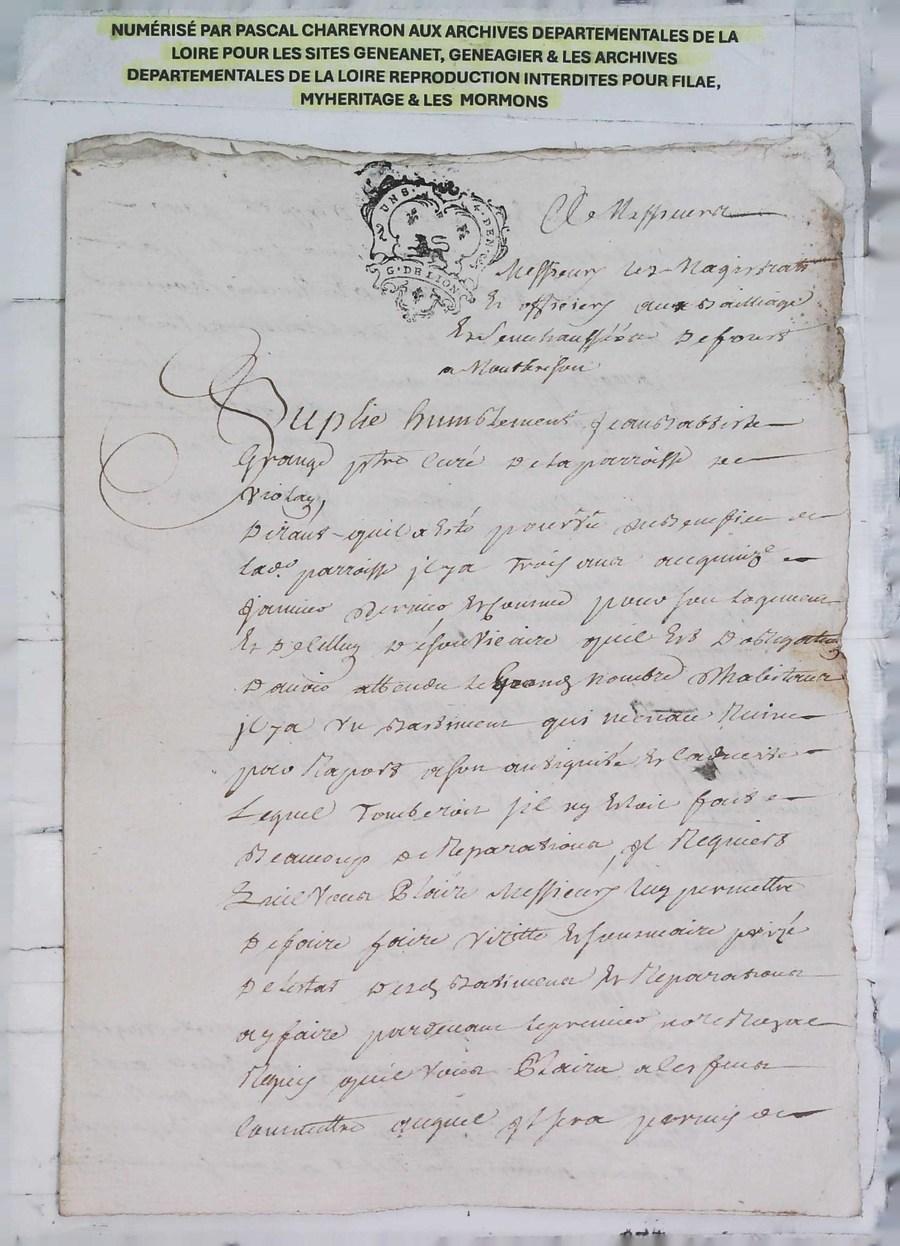 NUMÉRISÉ PAR PASCAL CHAREYRON AUX ARCHIVES DEPARTEMENTALES DE LA
LOIRE POUR LES SITES GENEANET, GENEAGIER & LES ARCHIVES
DEPARTEMENTALES DE LA LOIRE REPRODUCTION INTERDITES POUR FILAE,
MYHERITAGE & LES MORMONS
UNS. 4. DEN
G. DE LION
A Messieurs
Messieurs les Magistrats
Et officiers au Bailliage
Et Senechaussée De forest
a Montbrison
Suplie humblement Jean Babtiste
Grange ptre Curé De la parroisse de
Violay,
Disant quil a Esté pourvü du Benefice de
lade parroisse jl y a trois ans au quinze
Janvier Dernier Et comme pour son Logement
Et De Celluy De son Vicaire quil Est D'obligation
Davoir attendu le Grand Nombre D'habitans
jl y a un Bastiment qui menace Ruine
par Raport a son antiquité Et Caducitte
Lequel Tomberoit sil ny Estoit fait
Beaucoup de Reparations, jl Requiert
Quil Vous Plaise Messieurs luy permettre
De faire faire Visitte Et sommaire prisé
De lestat Desd Batimens Et Reparations
a y faire pardevant le premier notre Royal
Requis quil Vous Plaira a les fins
Commettre auquel jl sera permis de